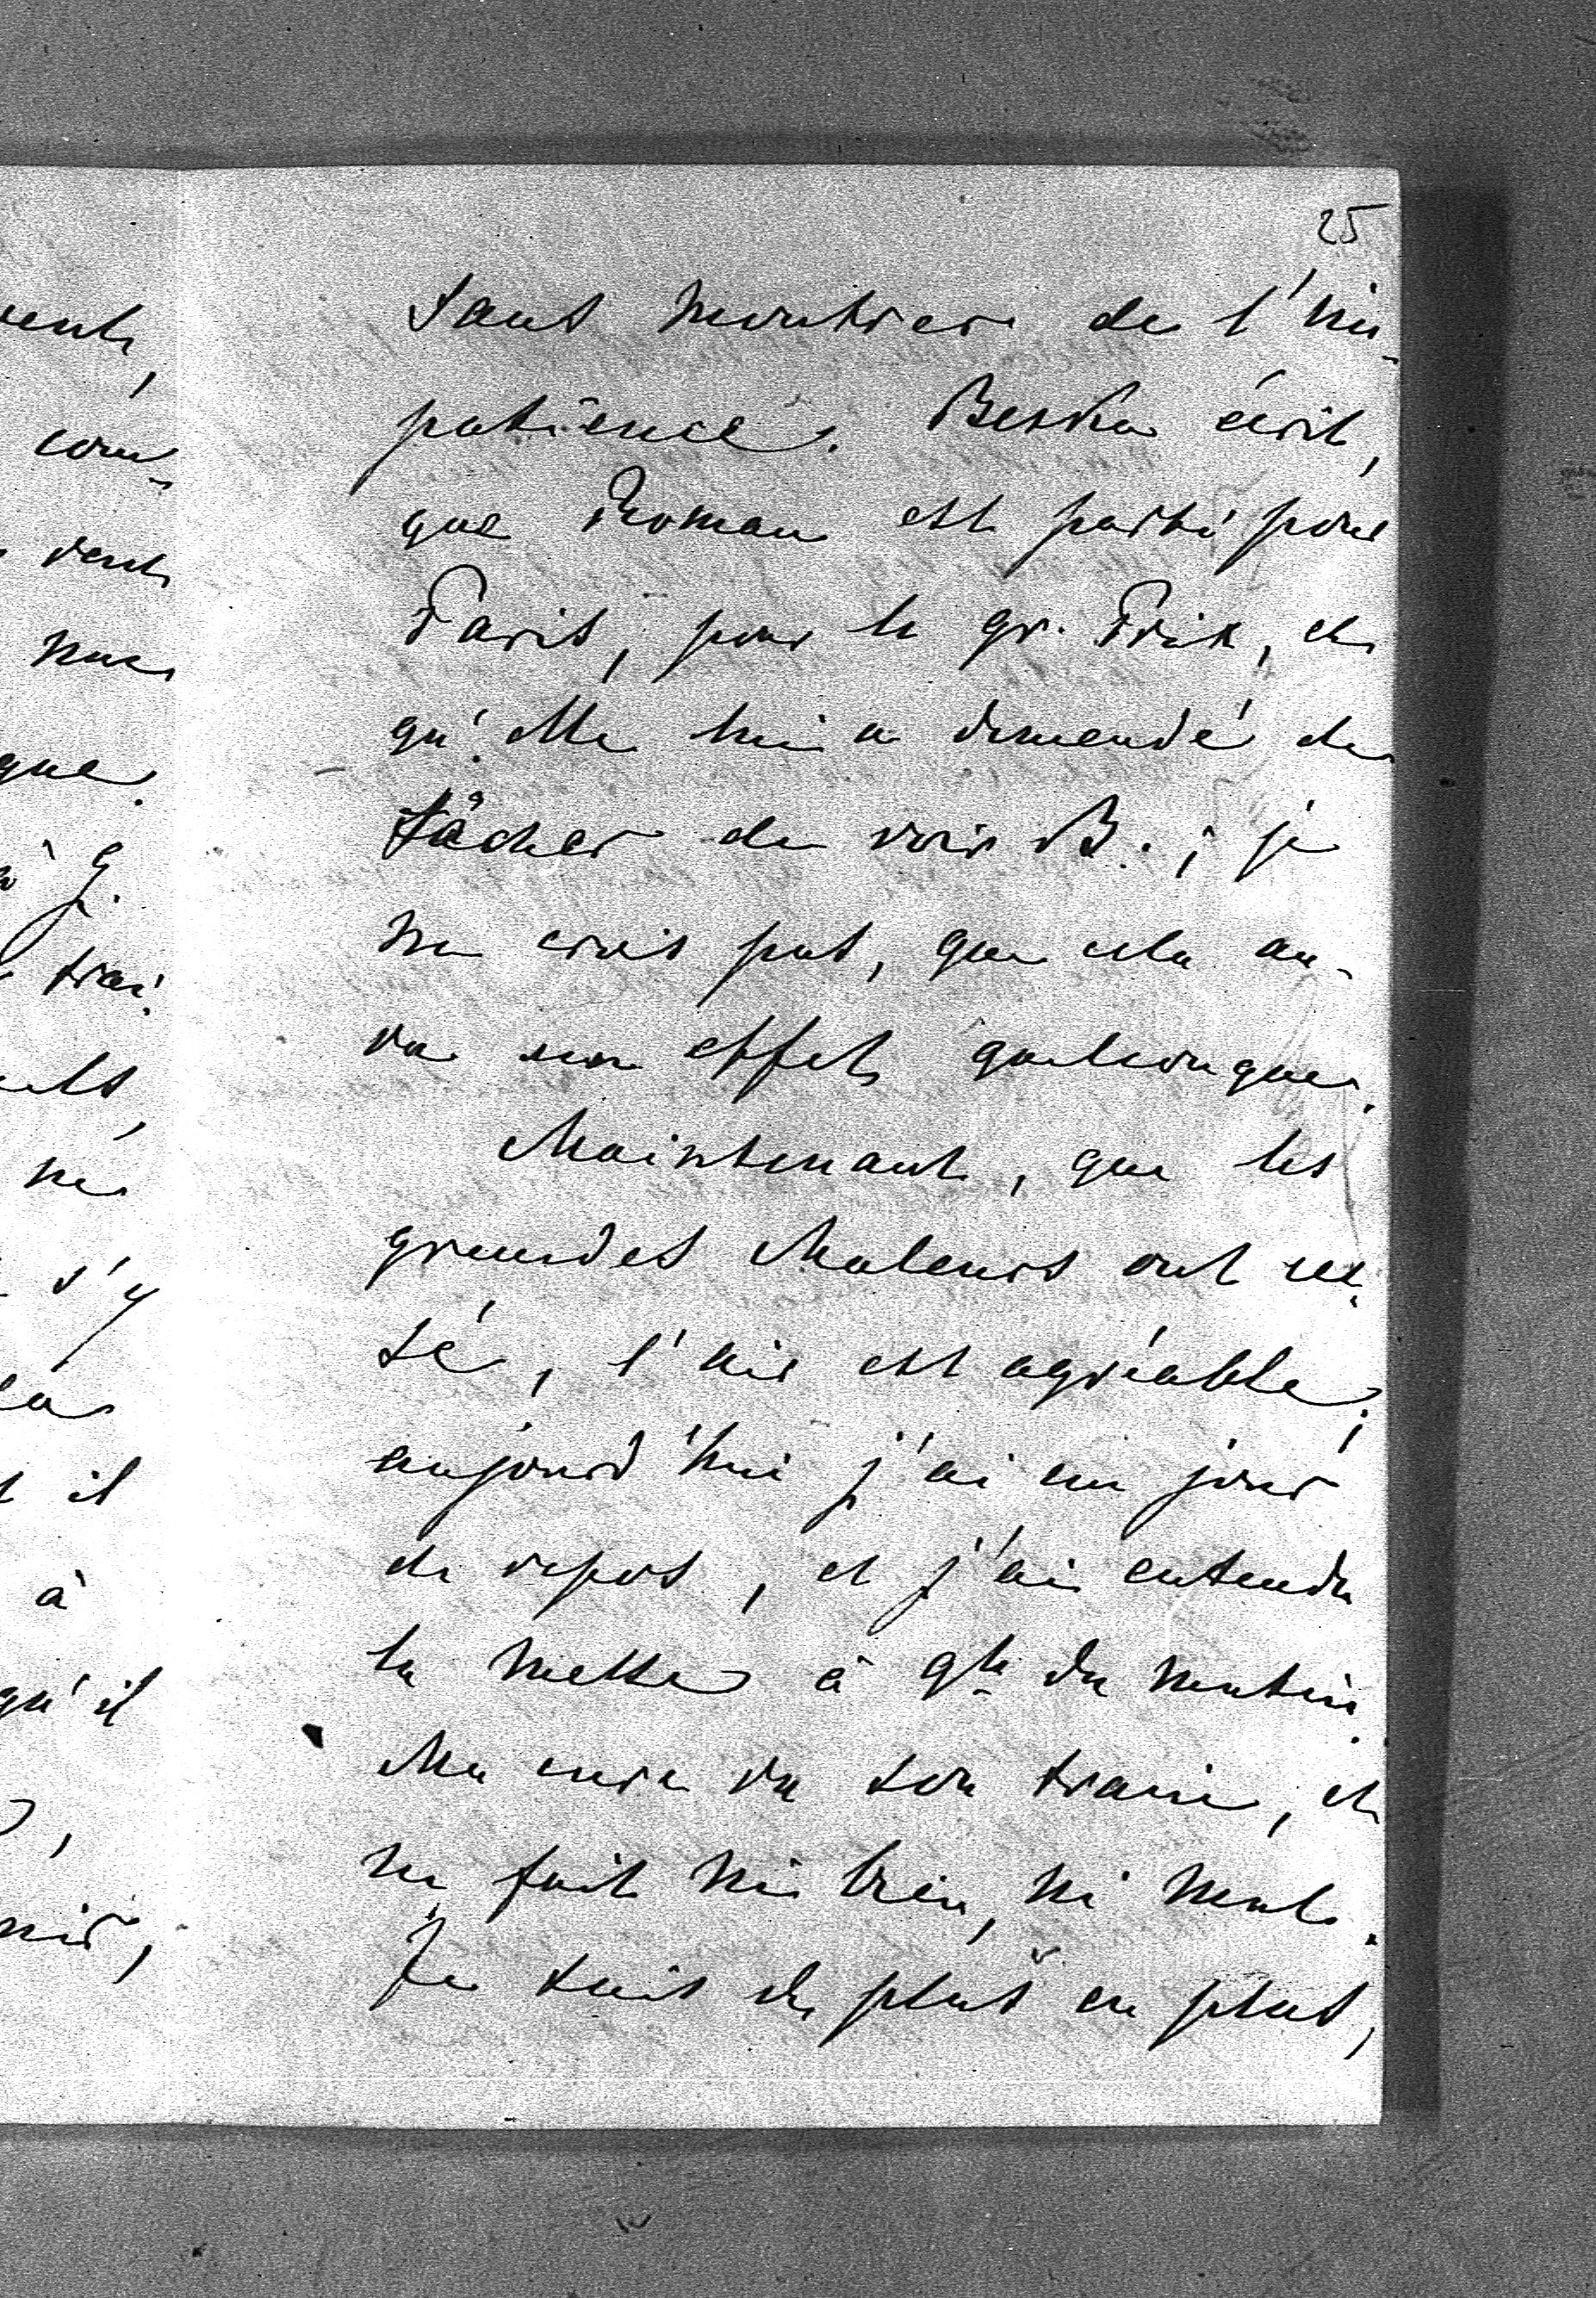 25
sans montrer de l'im-
patience. Beska écrit,
que Roman est parti pour
Paris, pour le gr. Prix, et
qu'elle lui a demandé de
tâcher de voir B.; je
ne crois pas, que cela au-
ra un effet quelconque.
Maintenant, que les
grandes chaleurs ont ces-
sé, l'air est agréable;
aujourd'hui j'ai un jour
de repos, et j'ai entendu
la messe à 9h du matin.
Ma cure va son train, et
ne fait ni bien, ni mal.
Je suis de plus en plus,
com-
que.
à G.
trai-
ne
s'y
il
à
qu'il